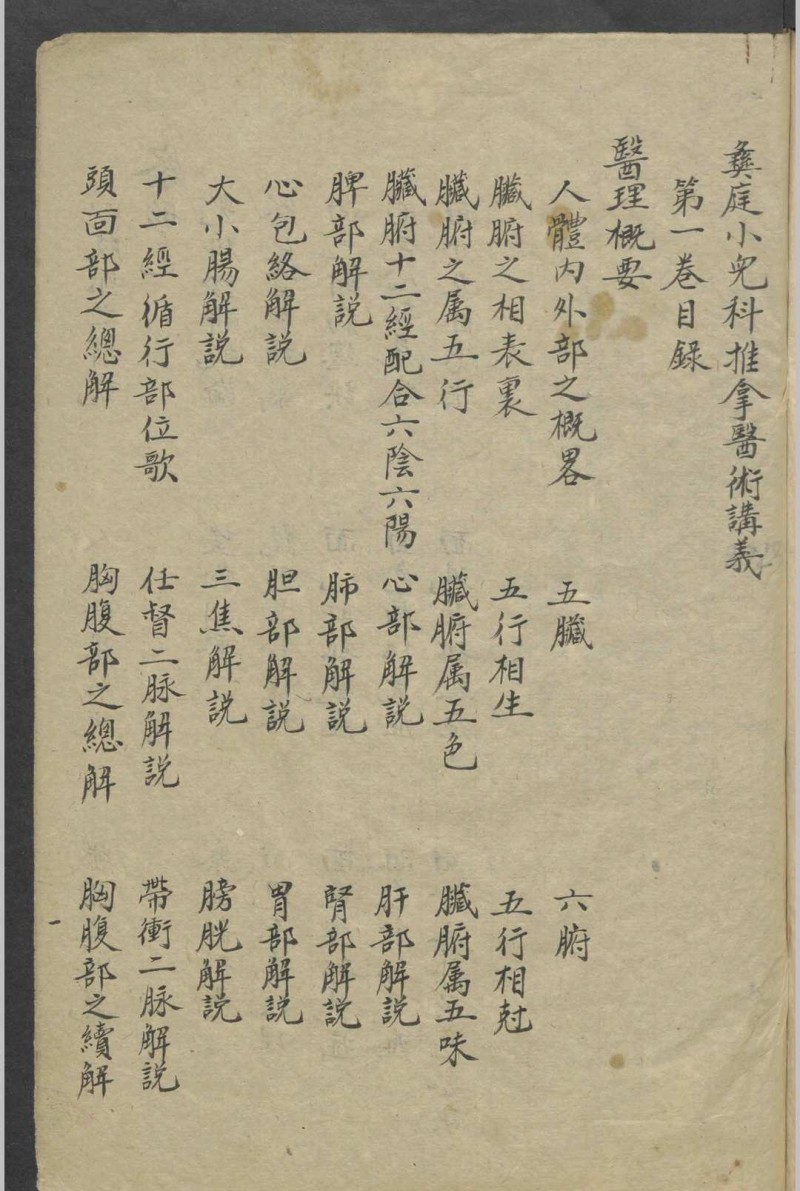 彝庭小兒科推拿醫術講義
第一卷目録
醫理概要
人體内外部之概畧 五臟 六腑
臟腑之相表裏 五行相生 五行相尅
臟腑之属五行 臟腑属五色 臟腑属五味
臟腑十二經配合六陰六陽 心部解説 肝部解説
脾部解説 肺部解説 腎部解説
心包絡解説 胆部解説 胃部解説
大小腸解説 三焦解説 膀胱解説
十二經循行部位歌 任督二脉解説 帶衝二脉解説
頭面部之總解 胸腹部之總解 胸腹部之續解